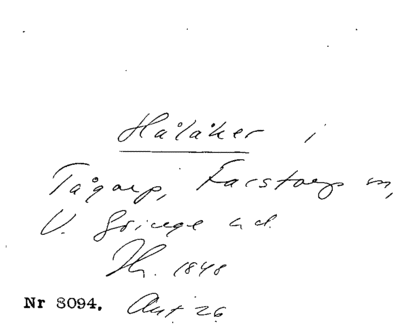 Hålåker i
Tågarp, Farstorp sn,
V. Göinge hd.
Jb. 1848
Nr 8094. Ant 26